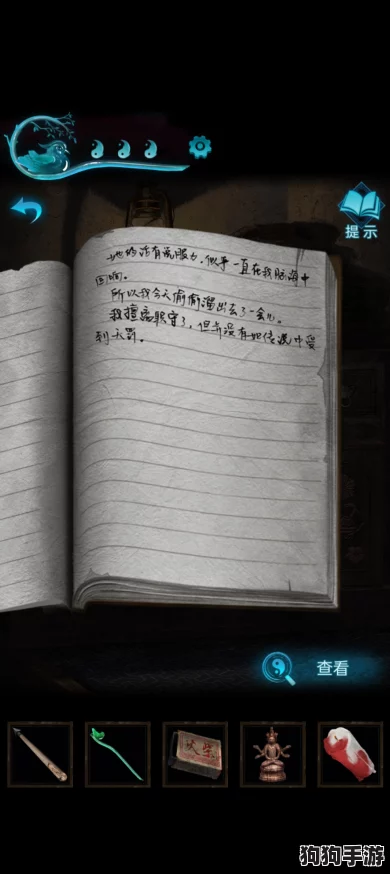 提示
她的话有说服力，似乎一直在我脑海中
回响。
所以我今天偷偷溜出去了一会儿。
我擅离职守了，但并没有如传说中受
到天罚。
查看
火柴
狗狗手游